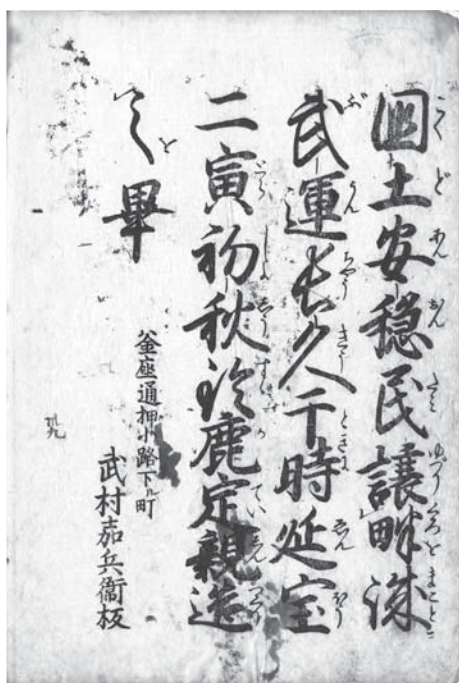 國土安穏民譲畔誠
武運長久于時延宝
二寅初秋鈴鹿定親造
之畢
釜座通押小路下ル町
武村嘉兵衞板